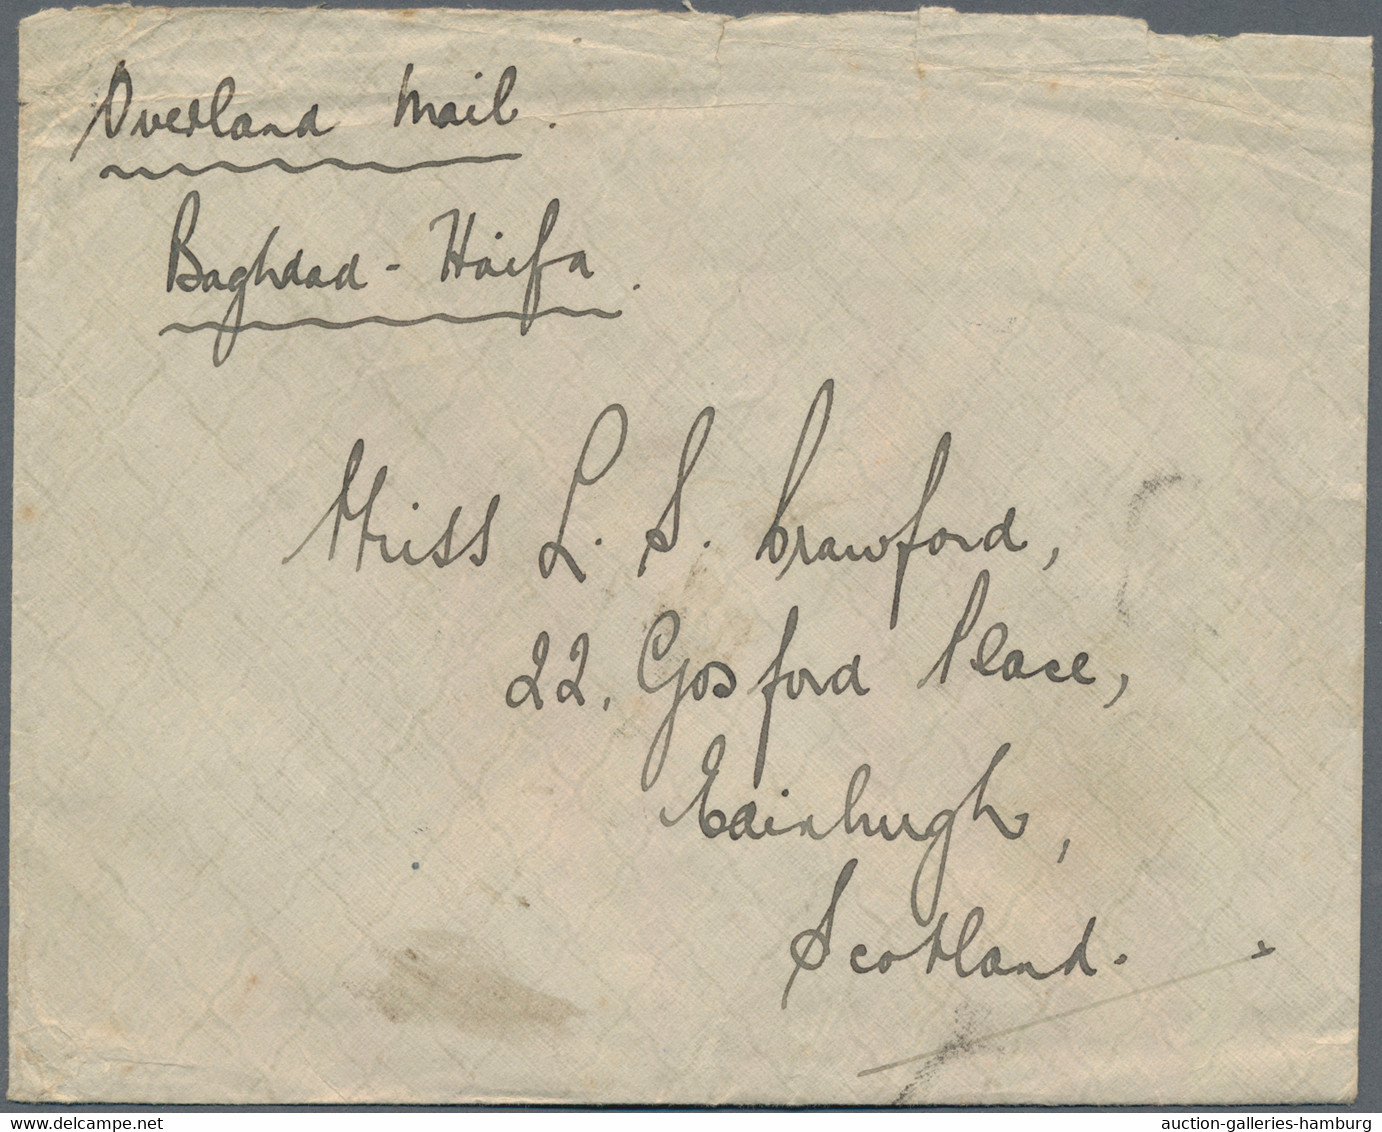 Overland Mail.
Baghdad - Haifa.
Miss L. S. Crawford,
22, Gosford Place,
Edinburgh,
Scotland.
delcampe.net
auction-galleries-hamburg